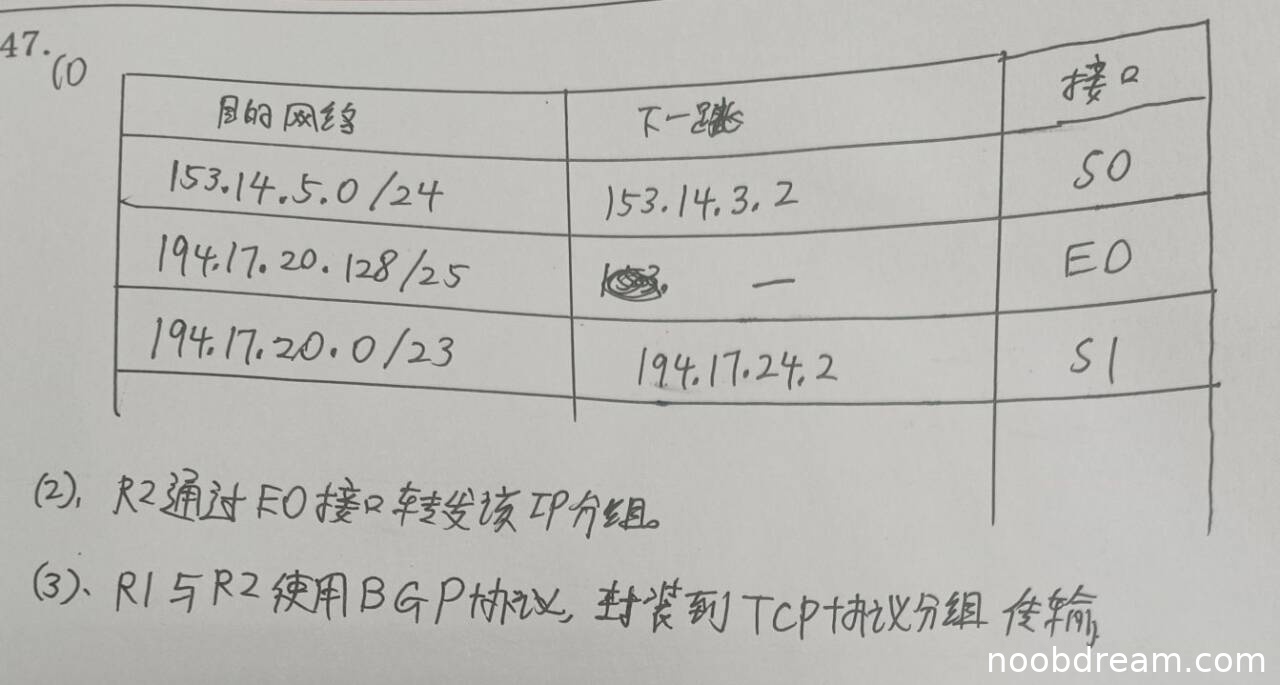 47.
(1)
目的网络 下一跳 接口
153.14.5.0/24 153.14.3.2 S0
194.17.20.128/25 — E0
194.17.20.0/23 194.17.24.2 S1
(2)、R2通过E0接口转发该IP分组。
(3)、R1与R2使用BGP协议,封装到TCP协议分组传输,
noobdream.com